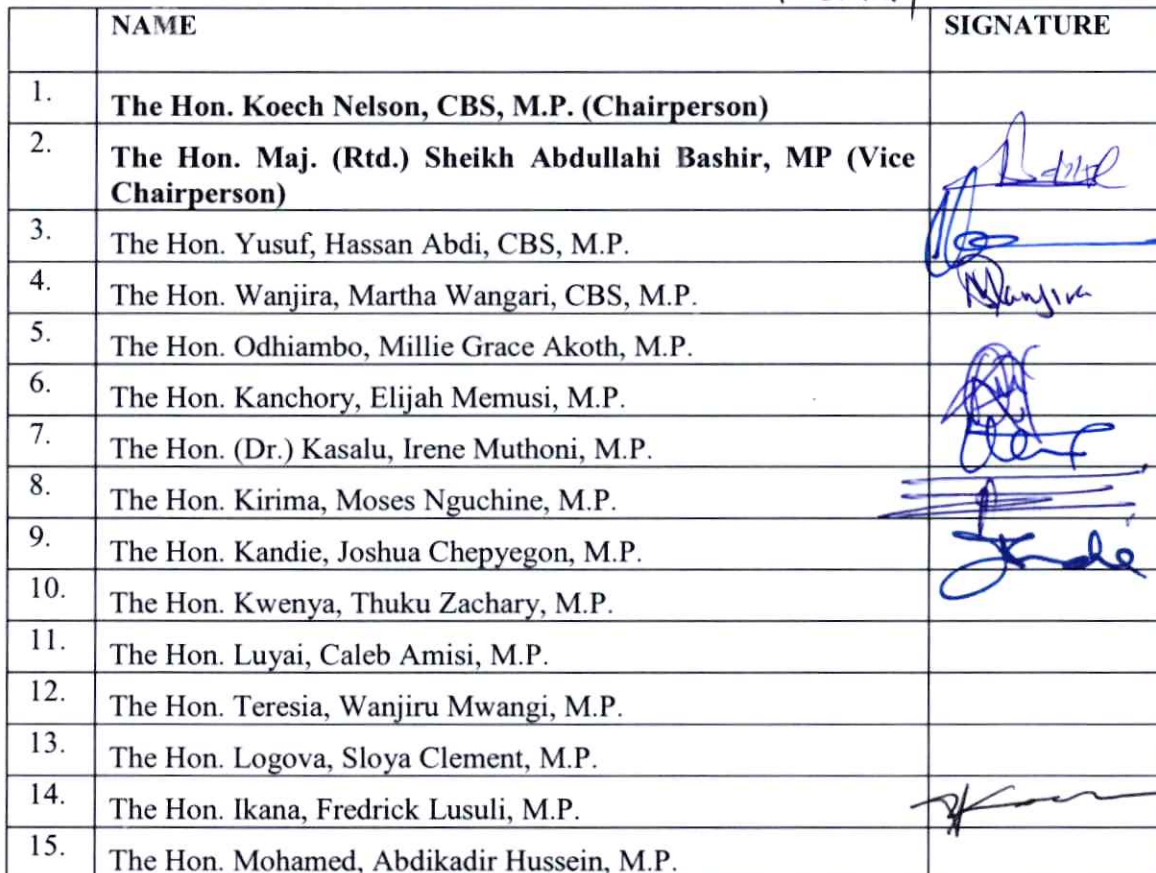 NAME SIGNATURE
1. The Hon. Koech Nelson, CBS, M.P. (Chairperson)
2. The Hon. Maj. (Rtd.) Sheikh Abdullahi Bashir, MP (Vice
Chairperson)
3. The Hon. Yusuf, Hassan Abdi, CBS, M.P.
4. The Hon. Wanjira, Martha Wangari, CBS, M.P. Wanjira
5. The Hon. Odhiambo, Millie Grace Akoth, M.P.
6. The Hon. Kanchory, Elijah Memusi, M.P.
7. The Hon. (Dr.) Kasalu, Irene Muthoni, M.P.
8. The Hon. Kirima, Moses Nguchine, M.P.
9. The Hon. Kandie, Joshua Chepyegon, M.P.
10. The Hon. Kwenya, Thuku Zachary, M.P.
11. The Hon. Luyai, Caleb Amisi, M.P.
12. The Hon. Teresia, Wanjiru Mwangi, M.P.
13. The Hon. Logova, Sloya Clement, M.P.
14. The Hon. Ikana, Fredrick Lusuli, M.P.
15. The Hon. Mohamed, Abdikadir Hussein, M.P.